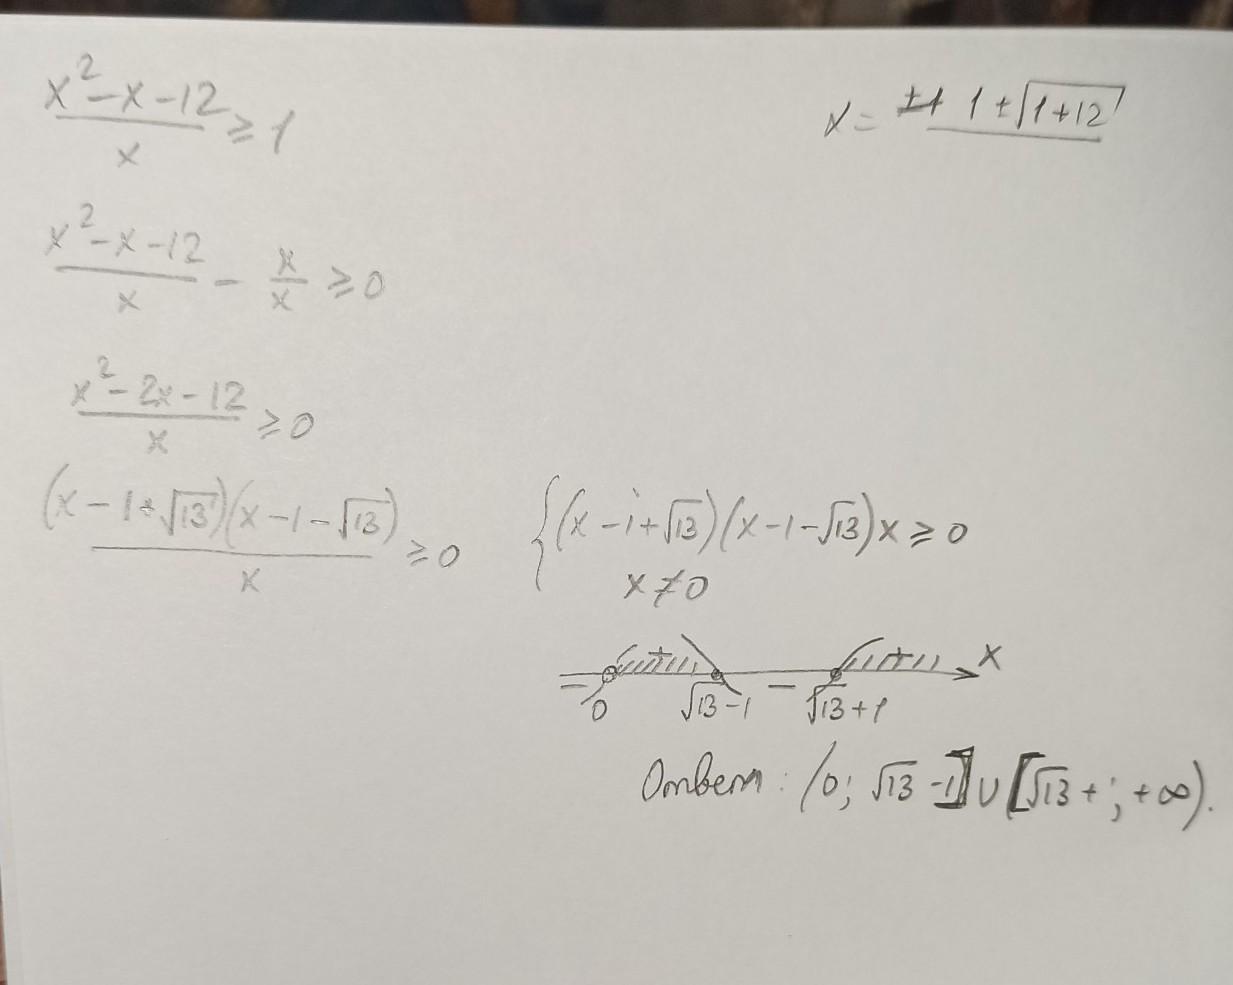 (x² - x - 12)/x ≥ 1
x = 1 ± √(1+12)
(x² - x - 12)/x - x/x ≥ 0
(x² - 2x - 12)/x ≥ 0
((x - 1 + √13)(x - 1 - √13))/x ≥ 0
{ (x - 1 + √13)(x - 1 - √13)x ≥ 0
x ≠ 0
+ + x
- 0 √13 - 1 - √13 + 1
Ответ: (0; √13 - 1] ∪ [√13 + ; +∞).